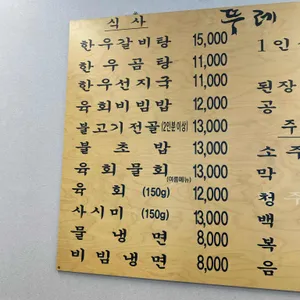 식사
한우갈비탕 15,000
한우곰탕 11,000
한우선지국 11,000
육회비빔밥 12,000
불고기전골(2인분이상) 13,000
불초밥 13,000
육회물회(여름메뉴) 13,000
육회 (150g) 12,000
사시미 (150g) 13,000
물냉면 8,000
비빔냉면 8,000
뚜레
1인
된장
공
주
소주
막
청
백
복
음